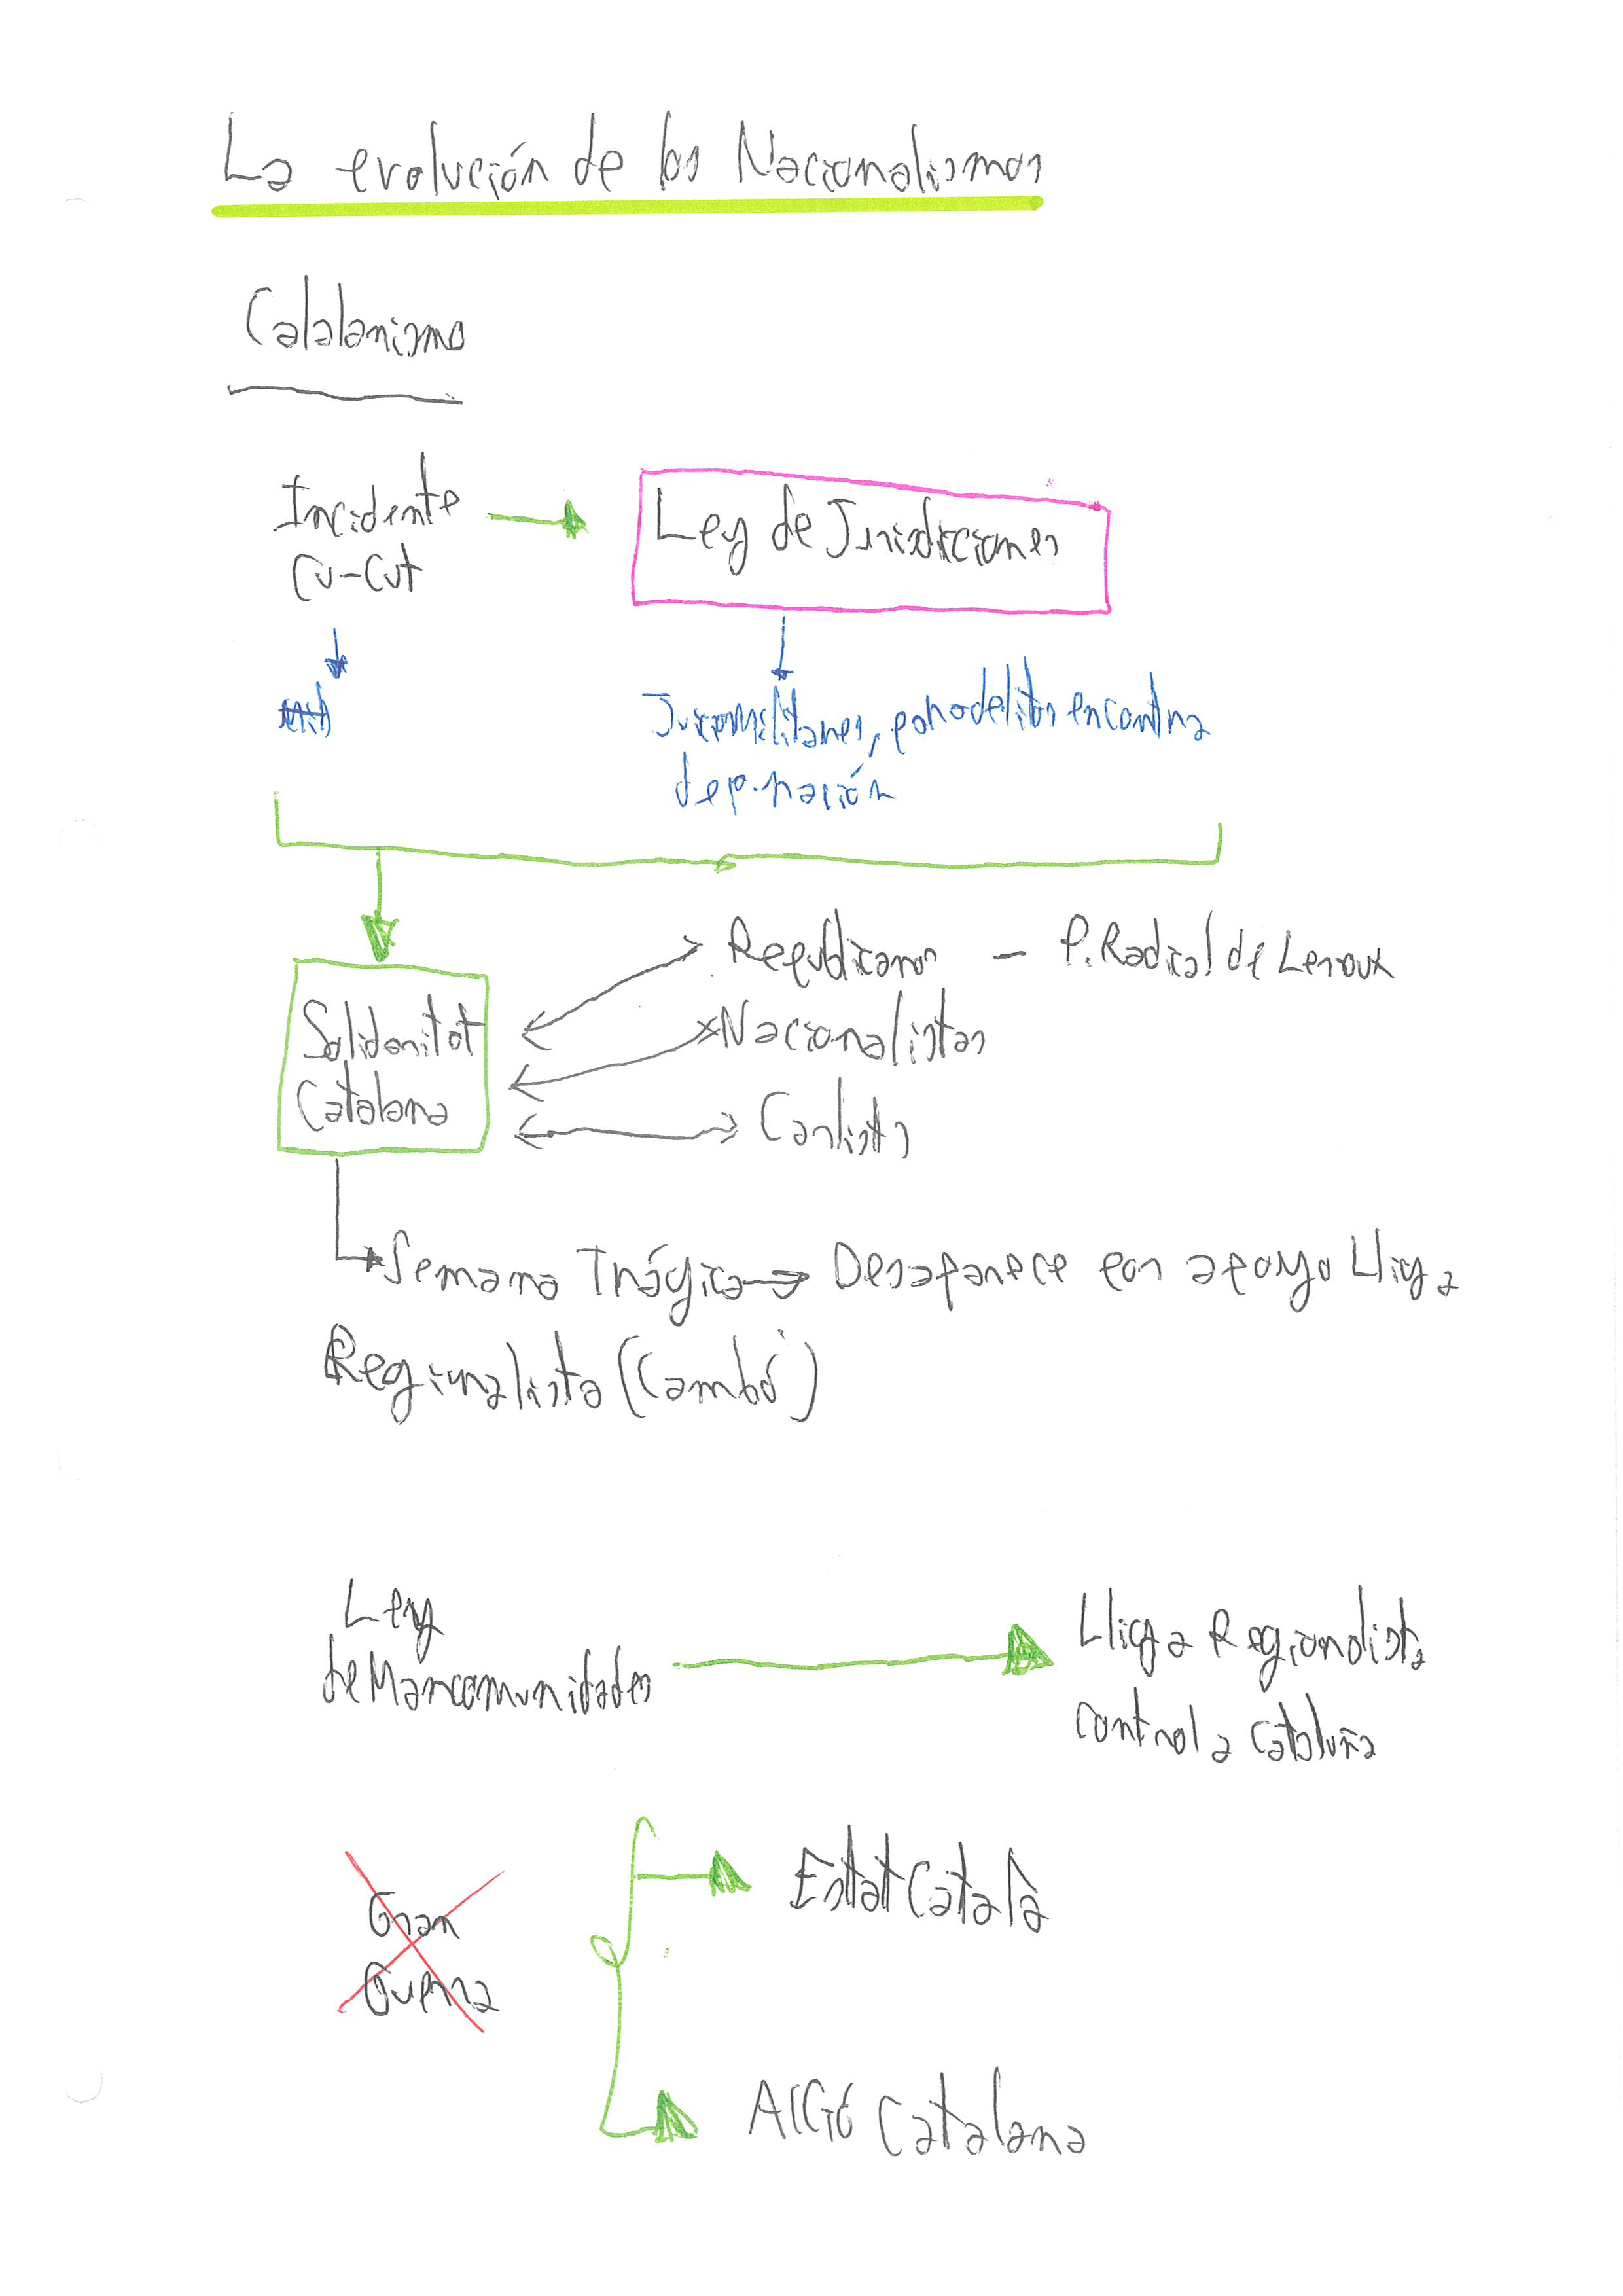 La evolución de los Nacionalismos
Catalanismo
Incidente
Cu-Cut
Ley de Jurisdicciones
militares, para delitos en contra
de nación
Solidaritat
Catalana
Republicanos — P. Radical de Leroux
Nacionalistas
Carlista
Semana Trágica → Desaparece por apoyo Lliga
Regionalista (Cambó)
Ley
de Mancomunidades
Lliga Regionalista
controla Cataluña
Gran
Guerra
Estat Català
Acció Catalana